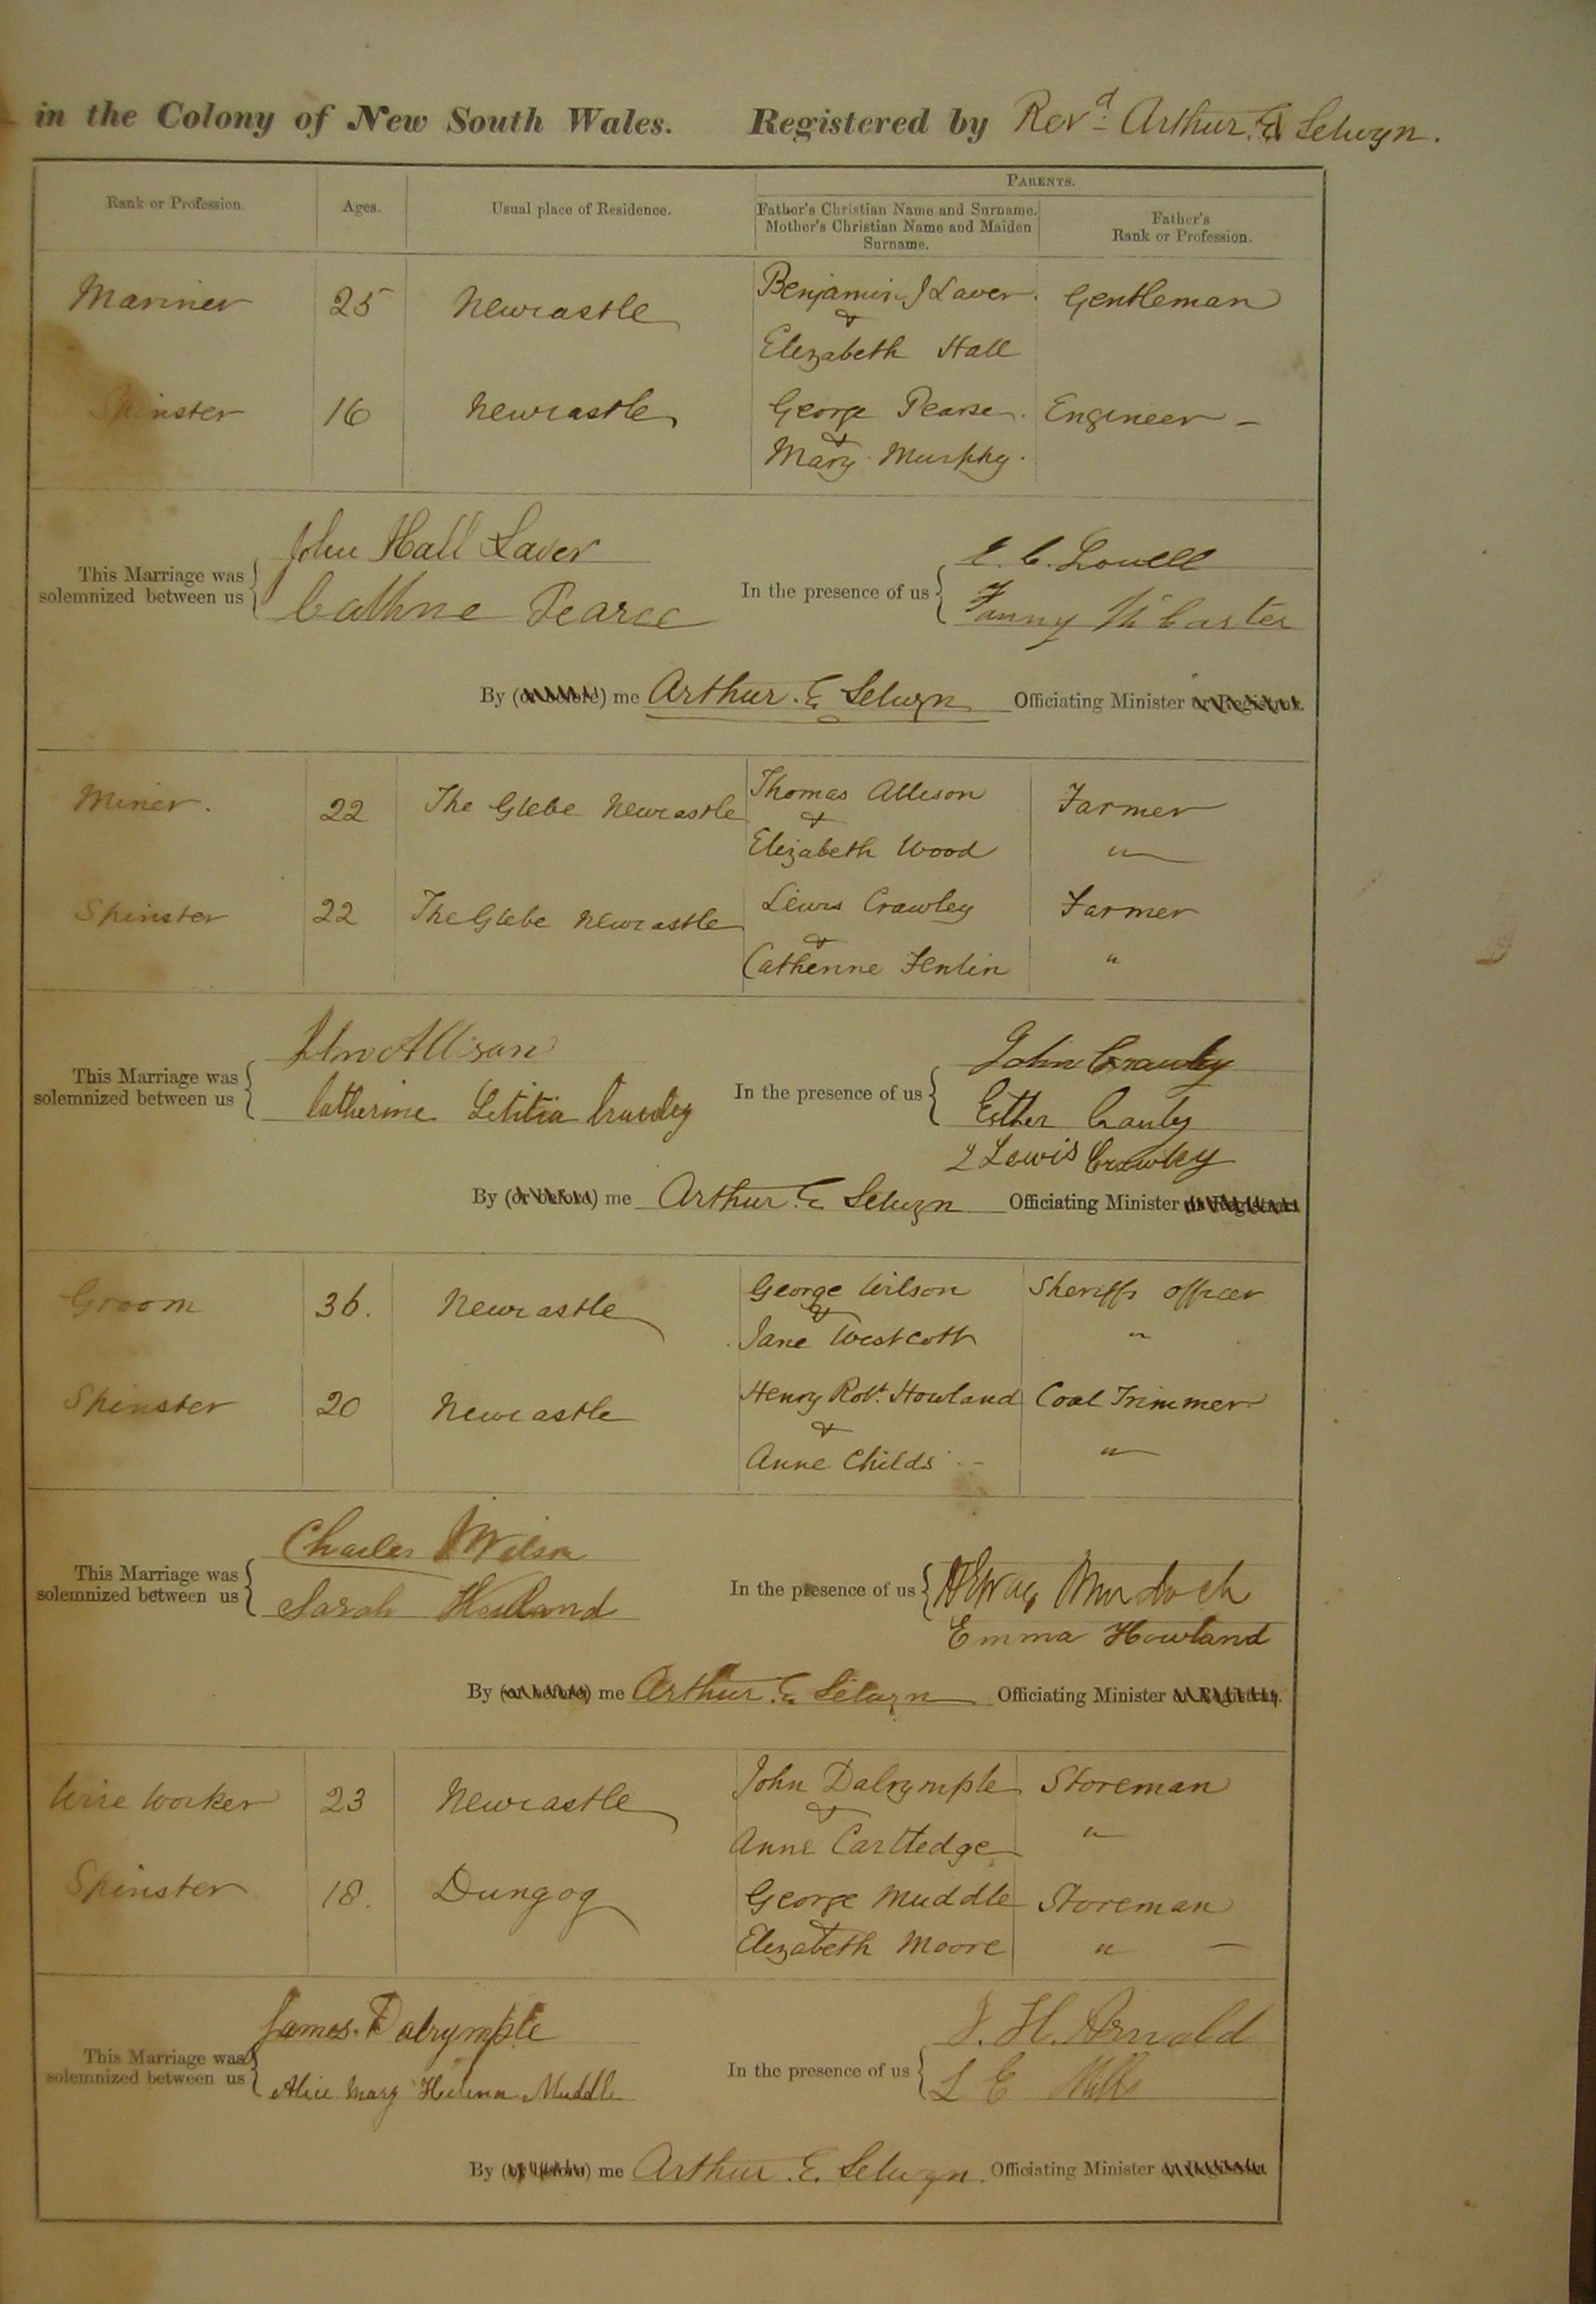 in the Colony of New South Wales. Registered by Revd Arthur E Selwyn.
PARENTS.
Rank or Profession. Ages. Usual place of Residence. Father's Christian Name and Surname. Mother's Christian Name and Maiden Surname. Father's Rank or Profession.
Mariner 25 Newcastle Benjamin J Laver. Gentleman
&
Elizabeth Hall
Spinster 16 Newcastle George Pearse. Engineer -
&
Mary Murphy.
John Hall Laver
This Marriage was solemnized between us In the presence of us
E. C. Lowell
Cathne Pearce
Fanny Mc Carter
By (or before) me Arthur. E Selwyn Officiating Minister or Registrar.
Miner. 22 The Glebe Newcastle Thomas Allison Farmer
&
Elizabeth Wood "
Spinster 22 The Glebe Newcastle Lewis Crawley Farmer
&
Catherine Fenlin "
John Allison
John Crawley
This Marriage was solemnized between us In the presence of us
Catherine Letitia Crawley
Esther Crauley
Lewis Crawley
By (or before) me Arthur. E Selwyn Officiating Minister or Registrar
Groom 36. Newcastle George Wilson Sheriffs officer
&
Jane Westcott "
Spinster 20 Newcastle Henry Robt. Howland Coal Trimmer
&
Anne Childs "
Charles Wilson
This Marriage was solemnized between us In the presence of us
Murdoch
Sarah Howland
Emma Howland
By (or before) me Arthur. E Selwyn Officiating Minister or Registrar.
Wire Worker 23 Newcastle John Dalrymple Storeman
&
Anne Cartledge "
Spinster 18. Dungog George Muddle Storeman
&
Elizabeth Moore " -
James. Dalrymple
J. H. Arnold
This Marriage was solemnized between us In the presence of us
Alice Mary Helena Muddle
L E
By (or before) me Arthur. E. Selwyn. Officiating Minister or Registrar